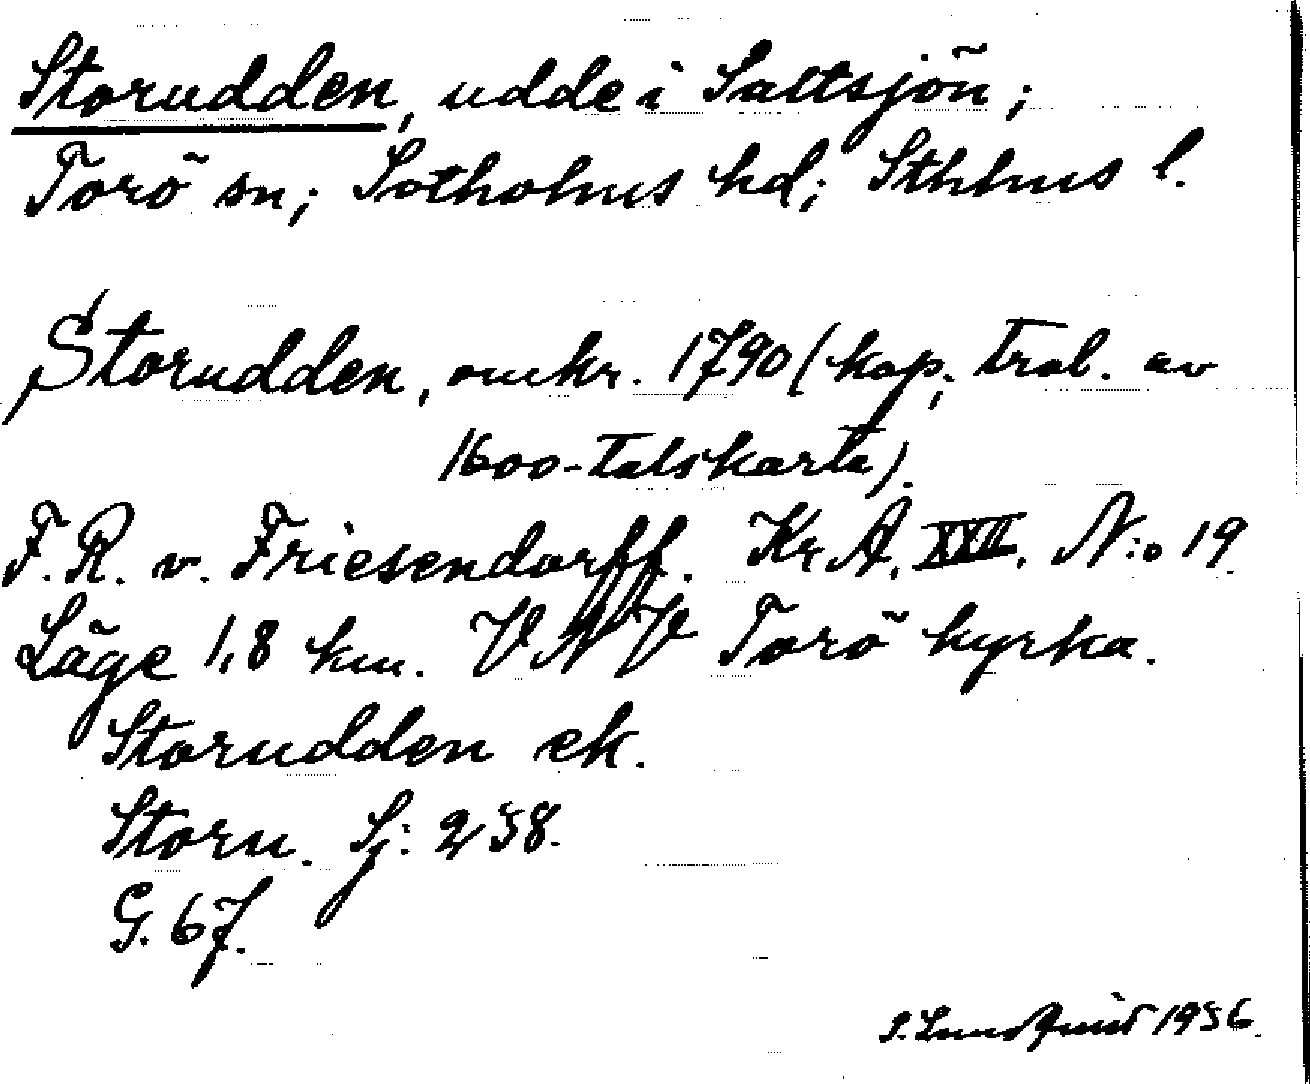 Storudden, udde i Saltsjön;
Torö sn; Sotholms hd; Sthlms l.
Storudden, omkr. 1790 (kop; trol. av
1600-talskarta).
F. R. v. Friesendorff. Kr. A. XVII. N:o 19
Läge 1,8 km. VNV Torö kyrka.
Storudden ek.
Storu. Sj: 238.
G. 67.
S. Lundquist 1936